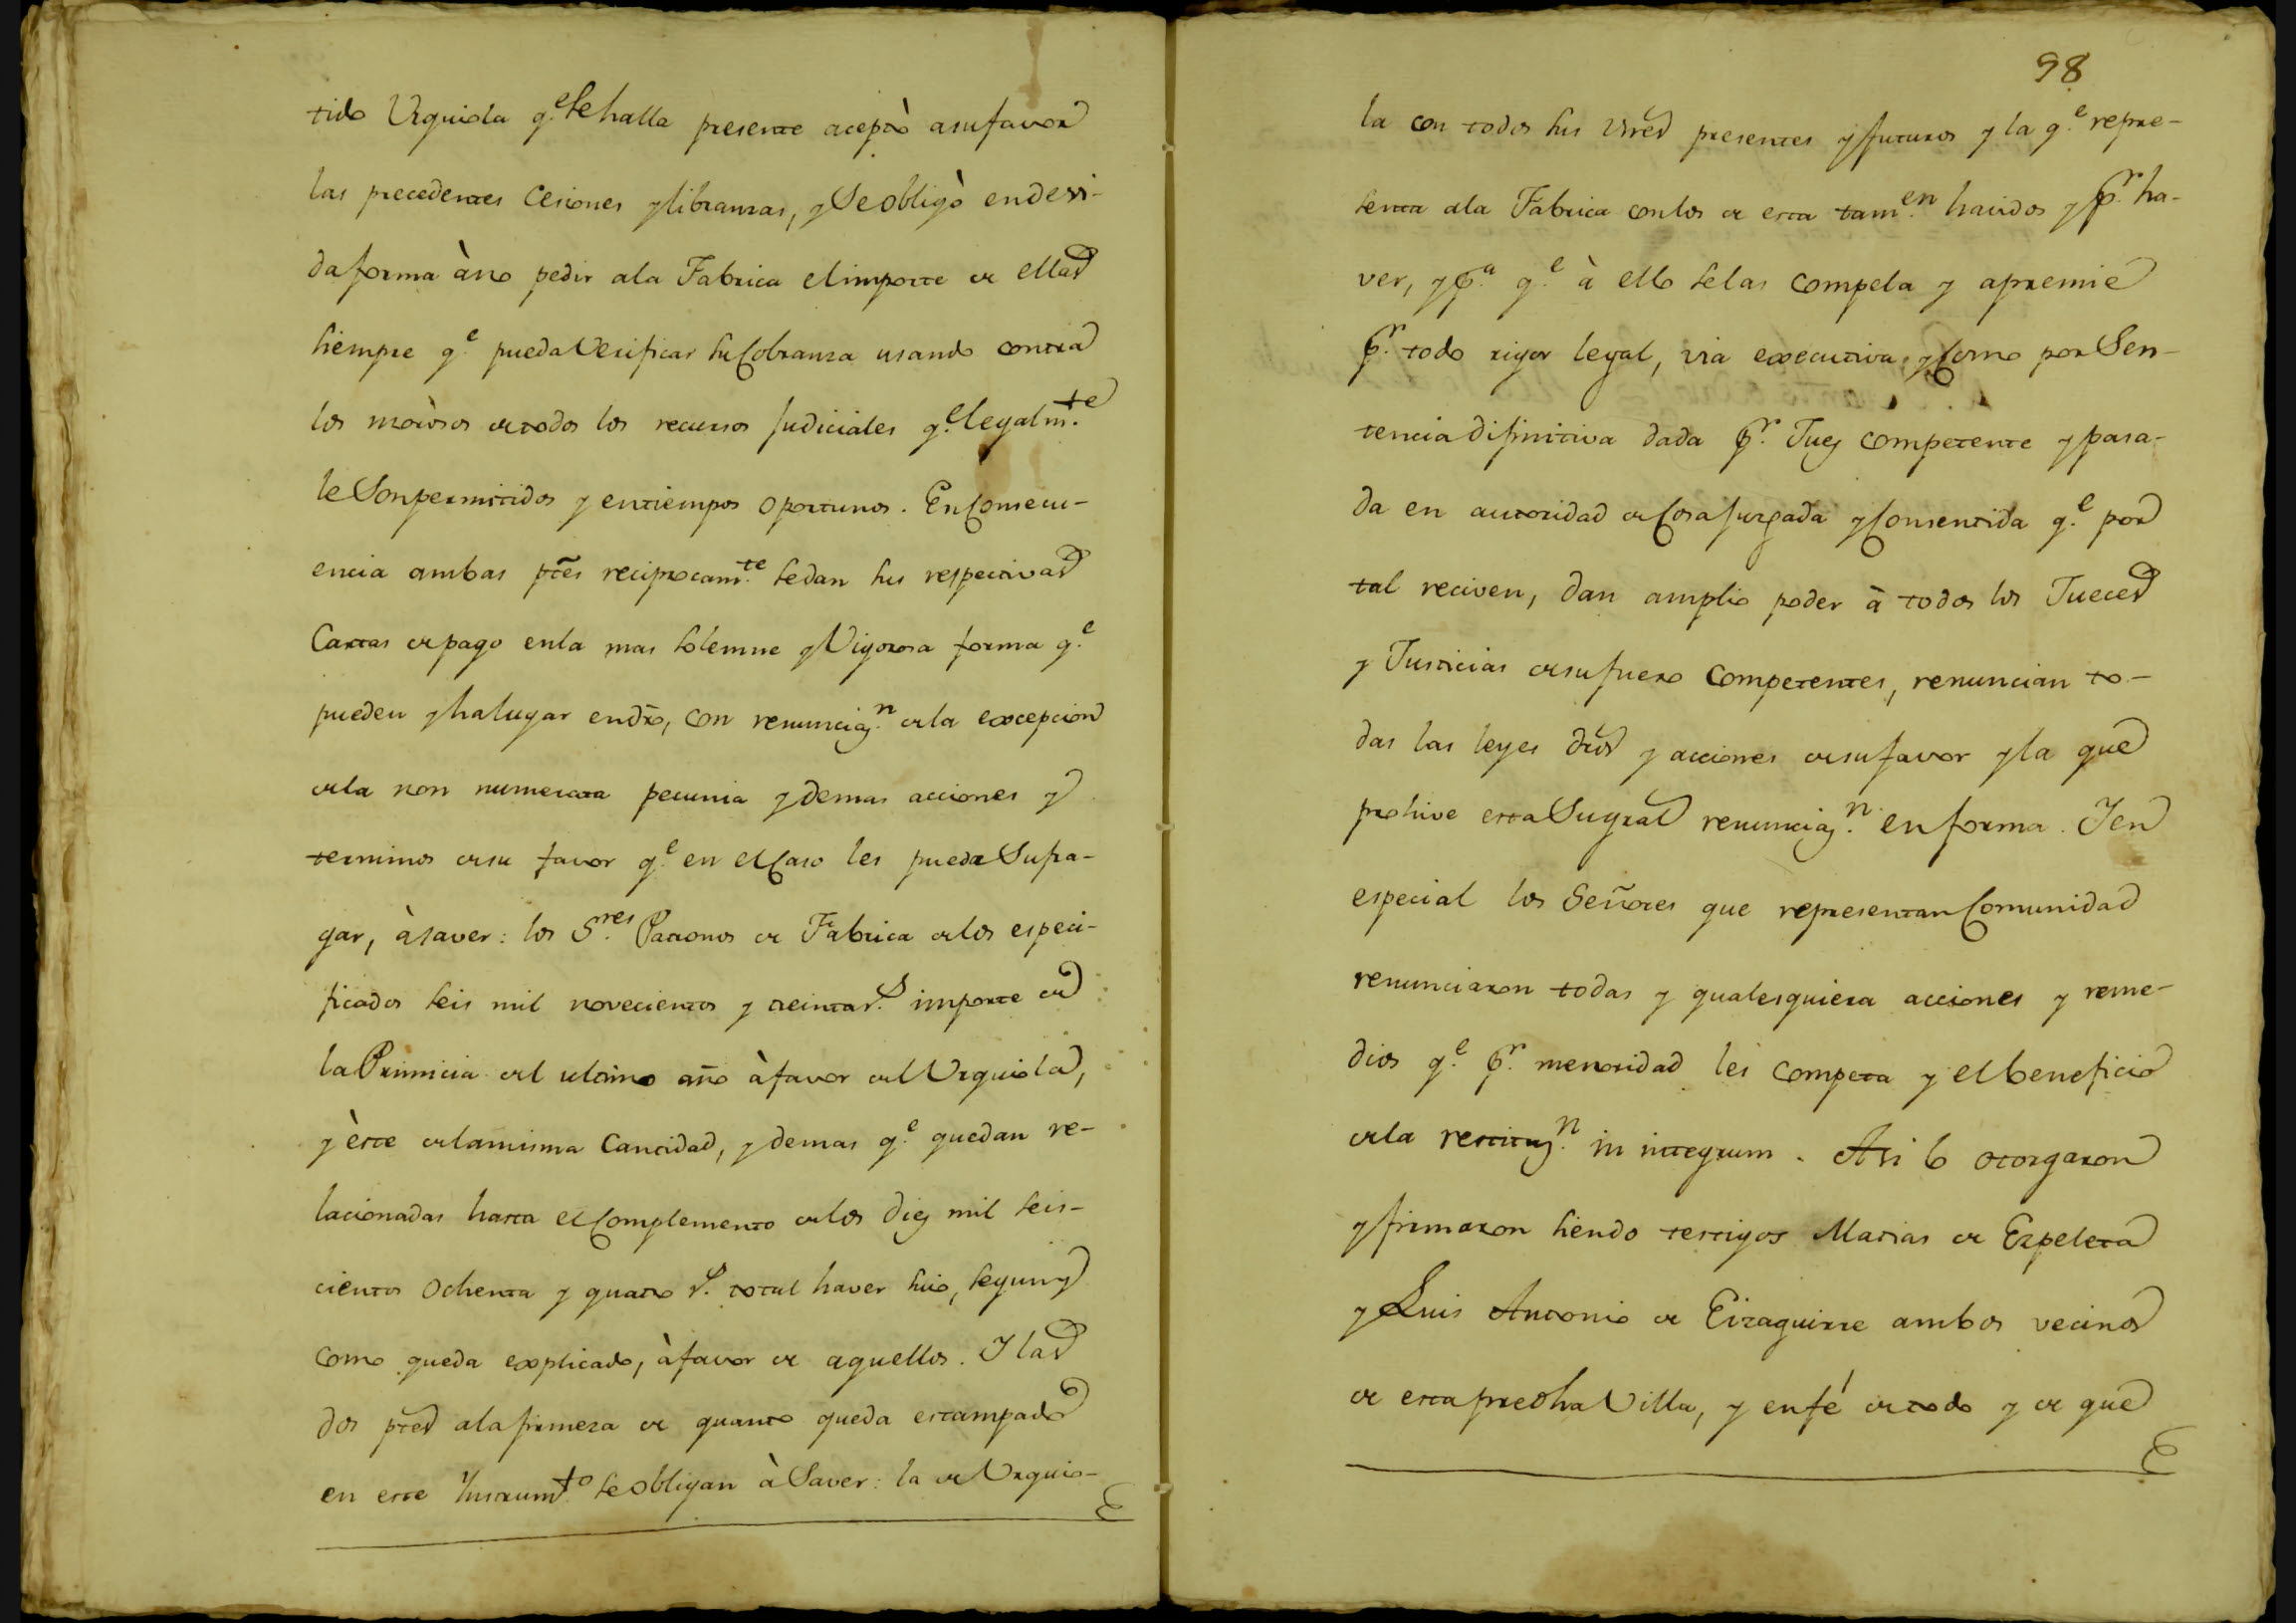 tido Urquiola q.e se halla presente aceptò a su favor
las precedentes Cesiones y libranzas, y se obligò en devi-
da forma à no pedir a la Fabrica el importe de ellas
siempre q.e pueda Verificar su Cobranza usando contra
los moròsos de todos los recursos Judiciales q.e legalm.te
le Son permitidos y en tiempos oportunos. En Consecu-
encia ambas ptẽs reciprocam.te se dan sus respectivas
Cartas de pago en la mas solemne y Vigorosa forma q.e
pueden y ha lugar en drõ, con renunciaz.n de la excepcion
de la non numerata pecunia y demas acciones y
terminos de su favor q.e en el Caso les pueda Sufra-
gar, à saver: los S.res Patronos de Fabrica de los especi-
ficados seis mil novecientos y treinta r.s importe de
la Primicia del ultimo año à favor del Urquiola,
y èste de la misma Cantidad, y demas q.e quedan re-
lacionadas hasta el Complemento de los diez mil seis-
cientos ochenta y quatro r.s total haver suio, segun y
como queda explicado, à favor de aquellos. I las
dos ptes a la firmeza de quanto queda estampado
en este Instrum.to se obligan à Saver: la de Urquio-
98
la con todos sus vres presentes y futuros y la q.e repre-
senta a la Fabrica con los de esta tam.en havidos y p.r ha-
ver, y p.a q.e à ello se las compela y apremie
p.r todo rigor legal, via executiva, y Como por Sen-
tencia difinitiva dada p.r Juez competente y pasa-
da en autoridad de Cosa Juzgada y Consentida q.e por
tal reciven, dan amplio poder à todos los Jueces
y Justicias de su fuero competentes, renuncian to-
das las leyes drõs y acciones de su favor y la que
prohive esta Su gral renunciaz.n en forma. I en
especial los Señores que representan Comunidad
renunciaron todas y qualesquiera acciones y reme-
dios q.e p.r menoridad les competa y el beneficio
de la restituz.n in integrum. Asi lo otorgaron
y firmaron siendo testigos Matias de Ezpeleta
y Luis Antonio de Eizaguirre ambos vecinos
de esta predha Villa, y en fé de todo y de que